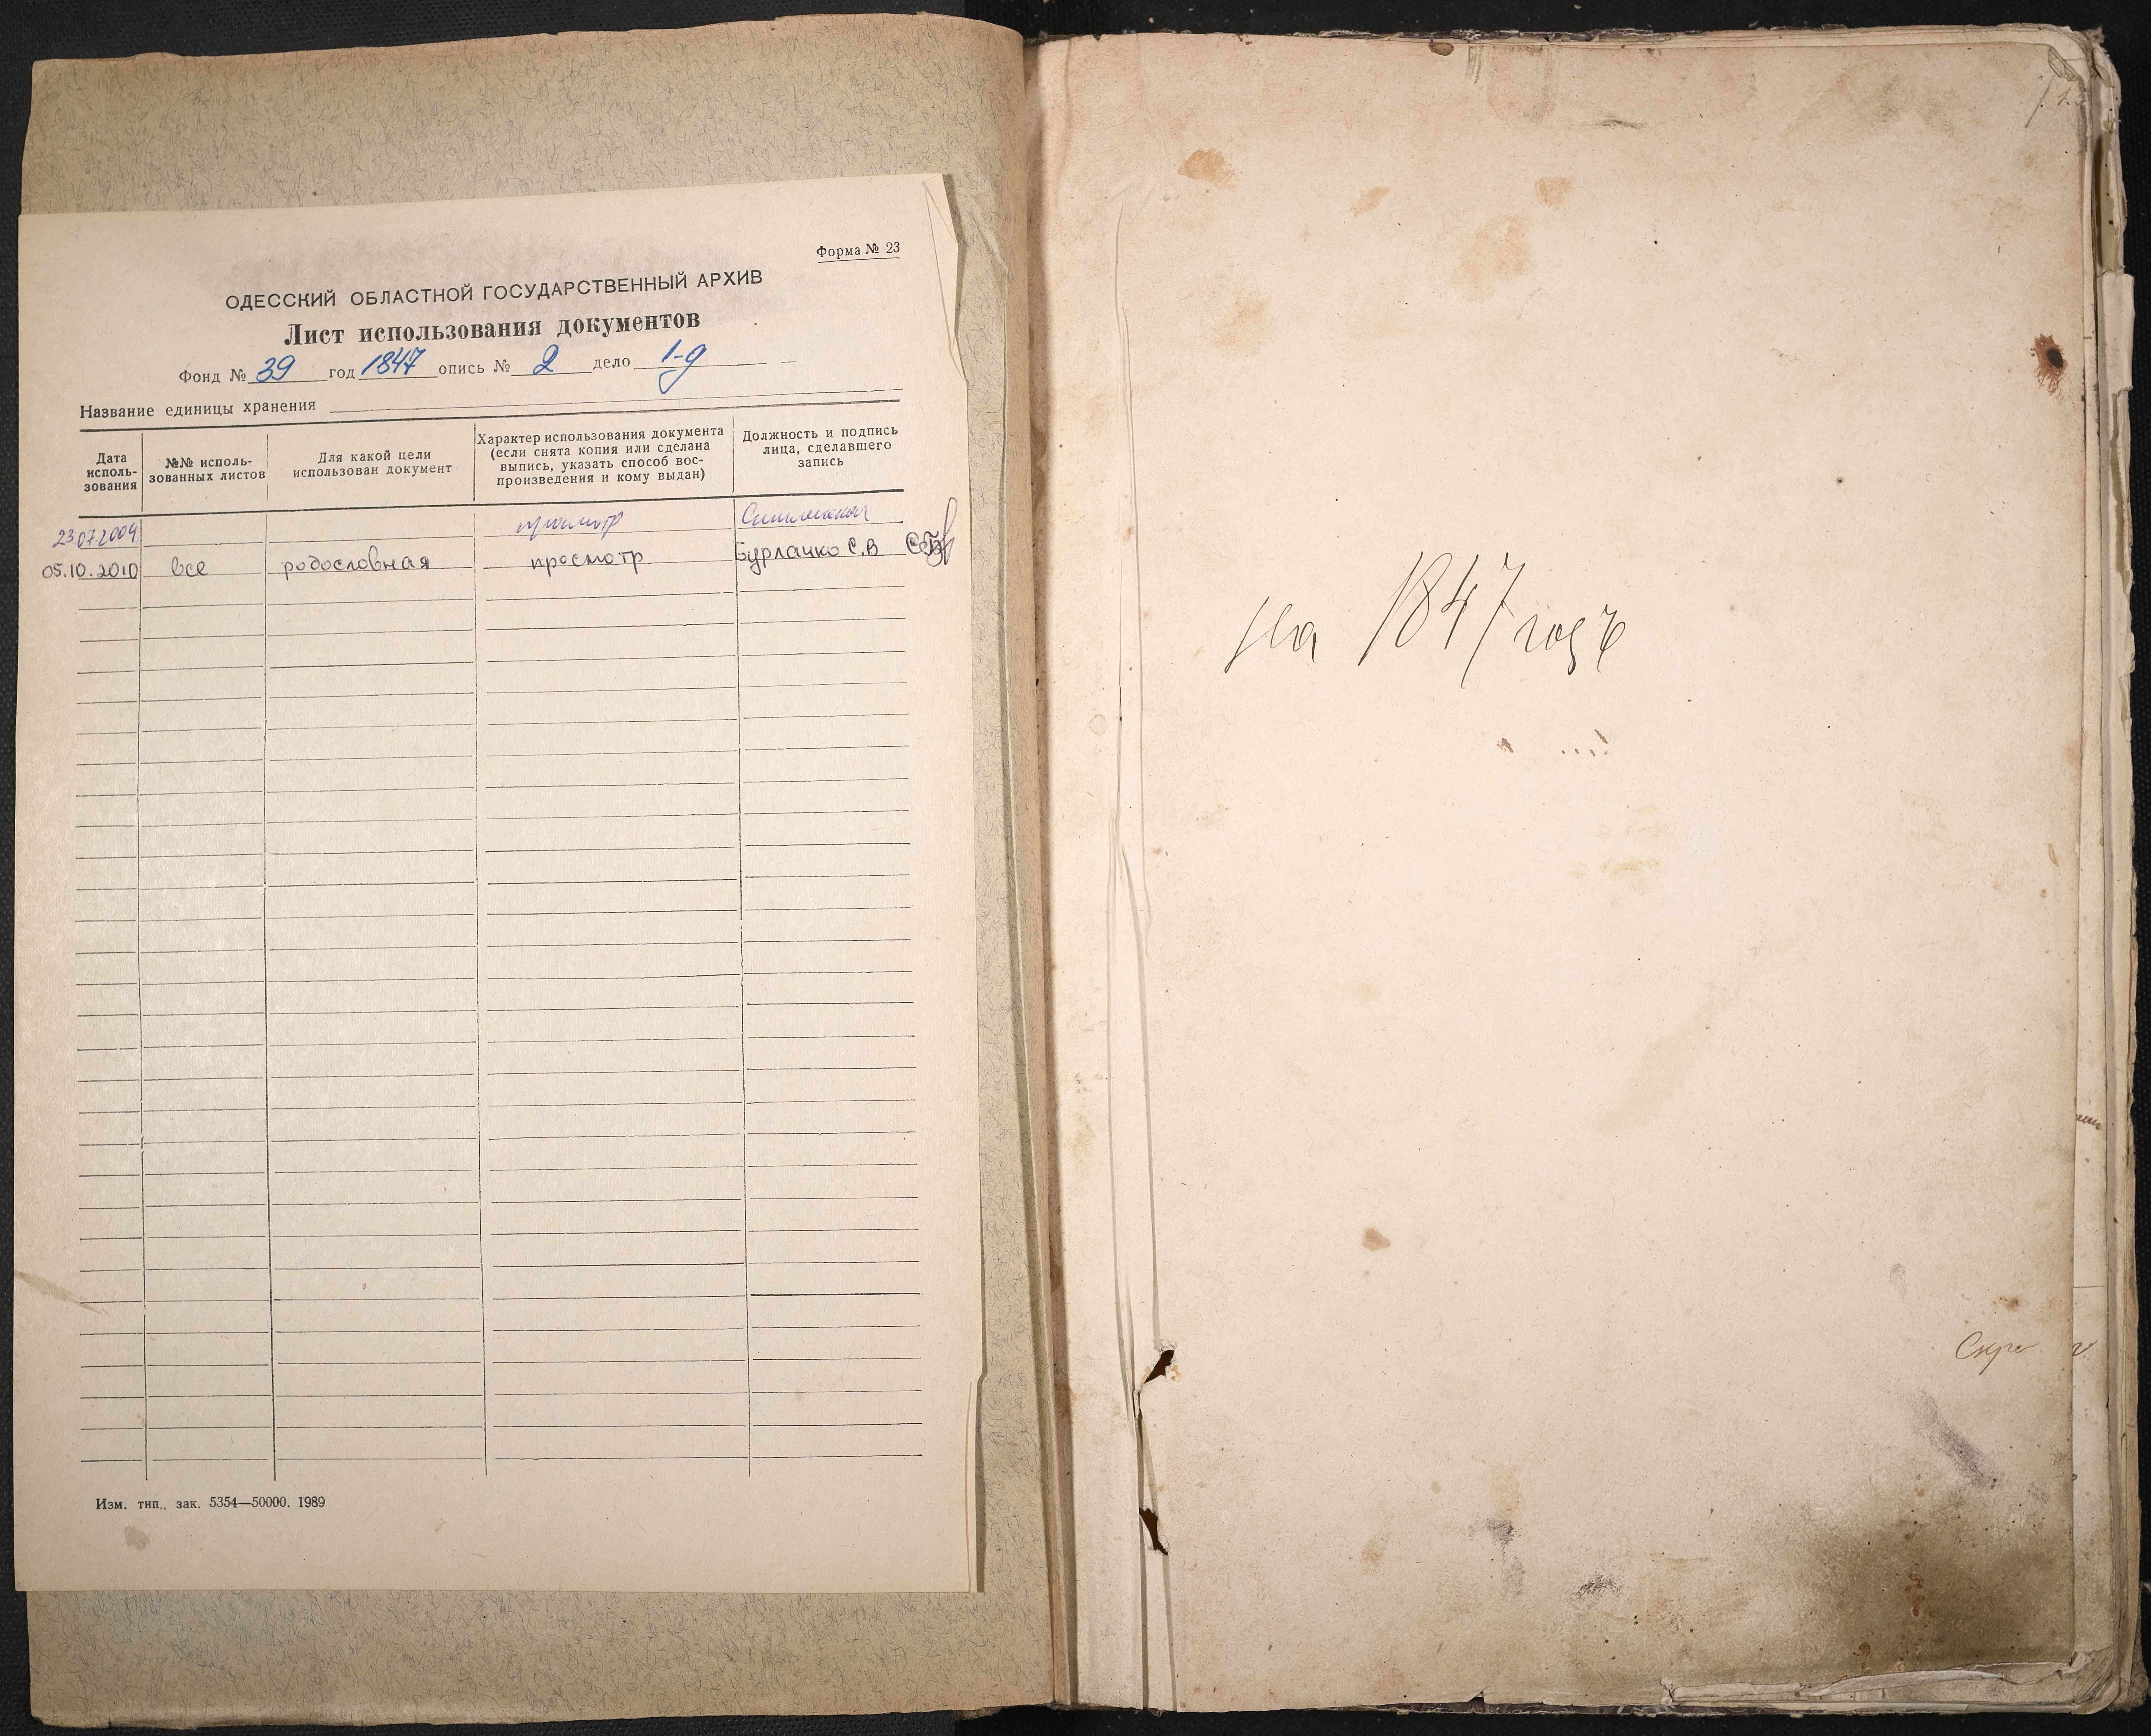 Форма № 23
ОДЕССКИЙ ОБЛАСТНОЙ ГОСУДАРСТВЕННЫЙ АРХИВ
Лист использования документов
Фонд № 39 год 1847 опись № 2 дело 1-д
Название единицы хранения
Дата исполь-
зования
№№ исполь-
зованных листов
Для какой цели
использован документ
Характер использования документа
(если снята копия или сделана
выпись, указать способ вос-
произведения и кому выдан)
Должность и подпись
лица, сделавшего
запись
23.07.2004 просмотр
05.10.2010 все родословная просмотр Бурлачко С.В
Изм. тип.. зак. 5354—50000. 1989
1.
на 1847 годъ